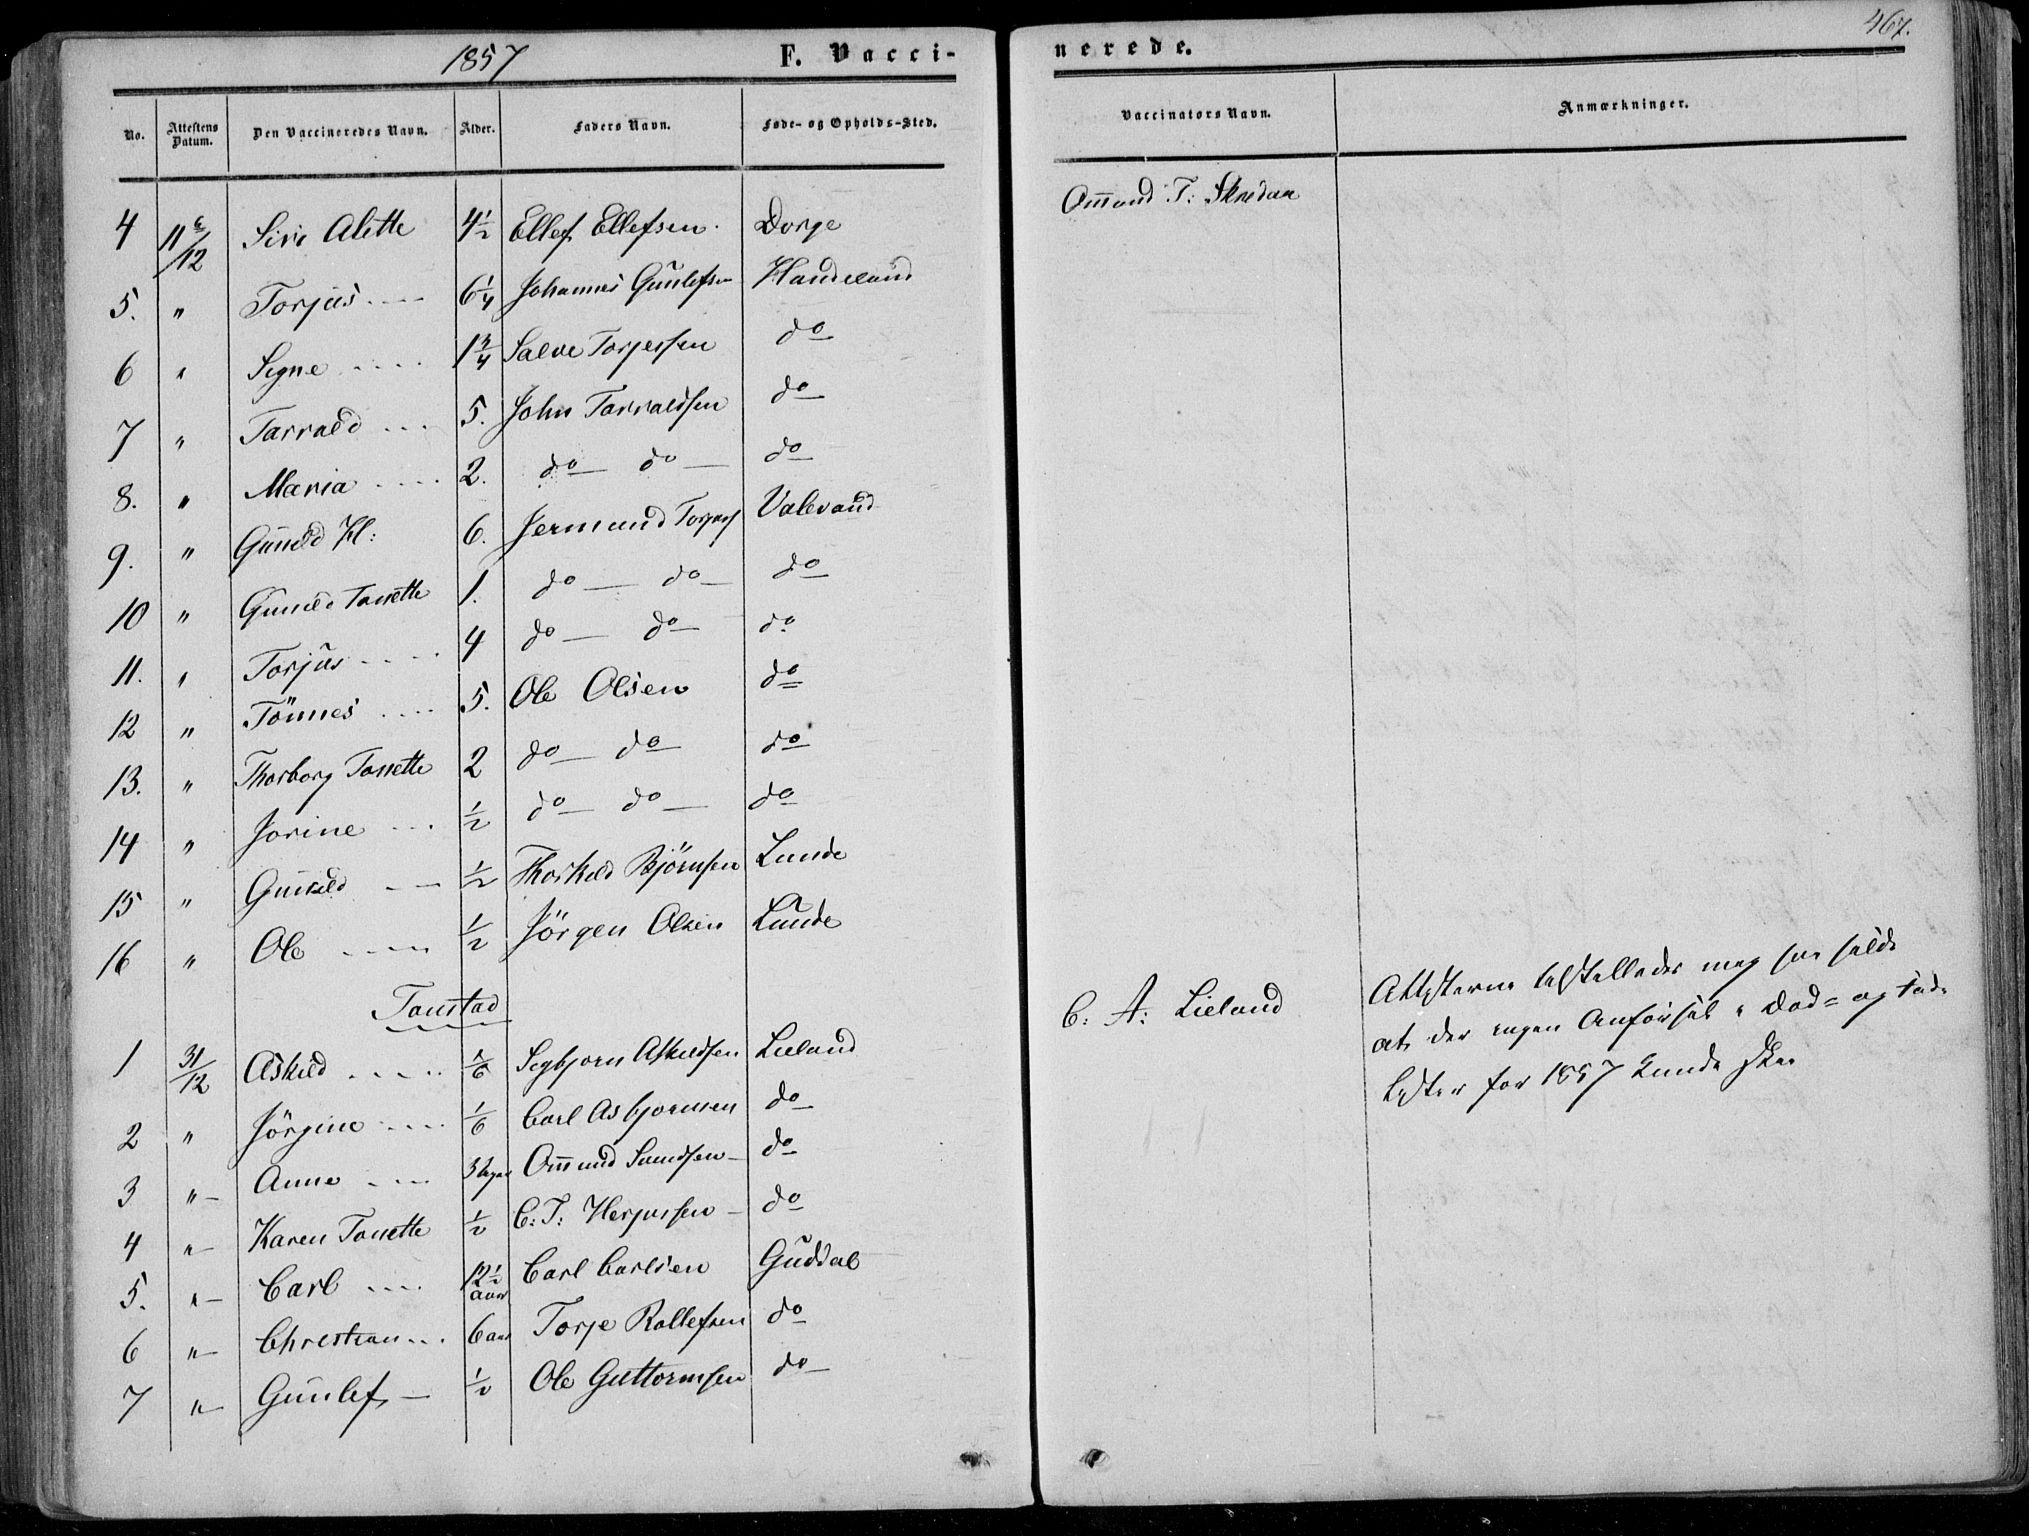 1857 F. Vacci-
No. Attestens Datum. Den Vaccineredes Navn. Alder. Faders Navn. Føde- og Opholds-Sted.
4 11/12 Siri Alette 4½ Ellef Ellefsen. Dorge
5. " Torjus .... 6¼ Johannes Gunlefsen Handeland
6 " Signe ..... 1¾ Salve Torjessen do
7 " Tarrald ... 5. John Tarraldsen do
8. " Maria .... 2. do do do
9. " Gunild Kl: 6. Jermund Torjuss Valevand
10 " Gunild Tonette 1. do do do
11. " Torjus .... 4 do do do
12 " Tönnes .... 5. Ole Olsen do
13. " Thorborg Tonette 2 do do do
14 " Jorine ... ½ do do do
15 " Gunild ½ Thorkild Björnsen Lunde
16 " Ole ..... ½ Jörgen Olsen Lunde
Tonstad
1 31/12 Askild ..... Segbjorn Askildsen Lieland
2 " Jörgine .... 1/6 Carl Asbjornsen do
3 " Anne .... 3 Omund Svendsen do
4 " Karen Tonette ½ C: T: Herjussen do
5. " Carl .... 12½ aar Carl Carlsen Guddal
6 " Christian ... 6 aar Torje Rollefsen do
7 " Gunlef ½ Ole Guttormsen do
nerede. 467.
Vaccinators Navn. Anmærkninger.
Omund T: Skredaa
C: A: Lieland
Attesterne tilstilledes mig saa silde
at der ingen Anförsel i Dåb= og
Lister for 1857 kunde skee